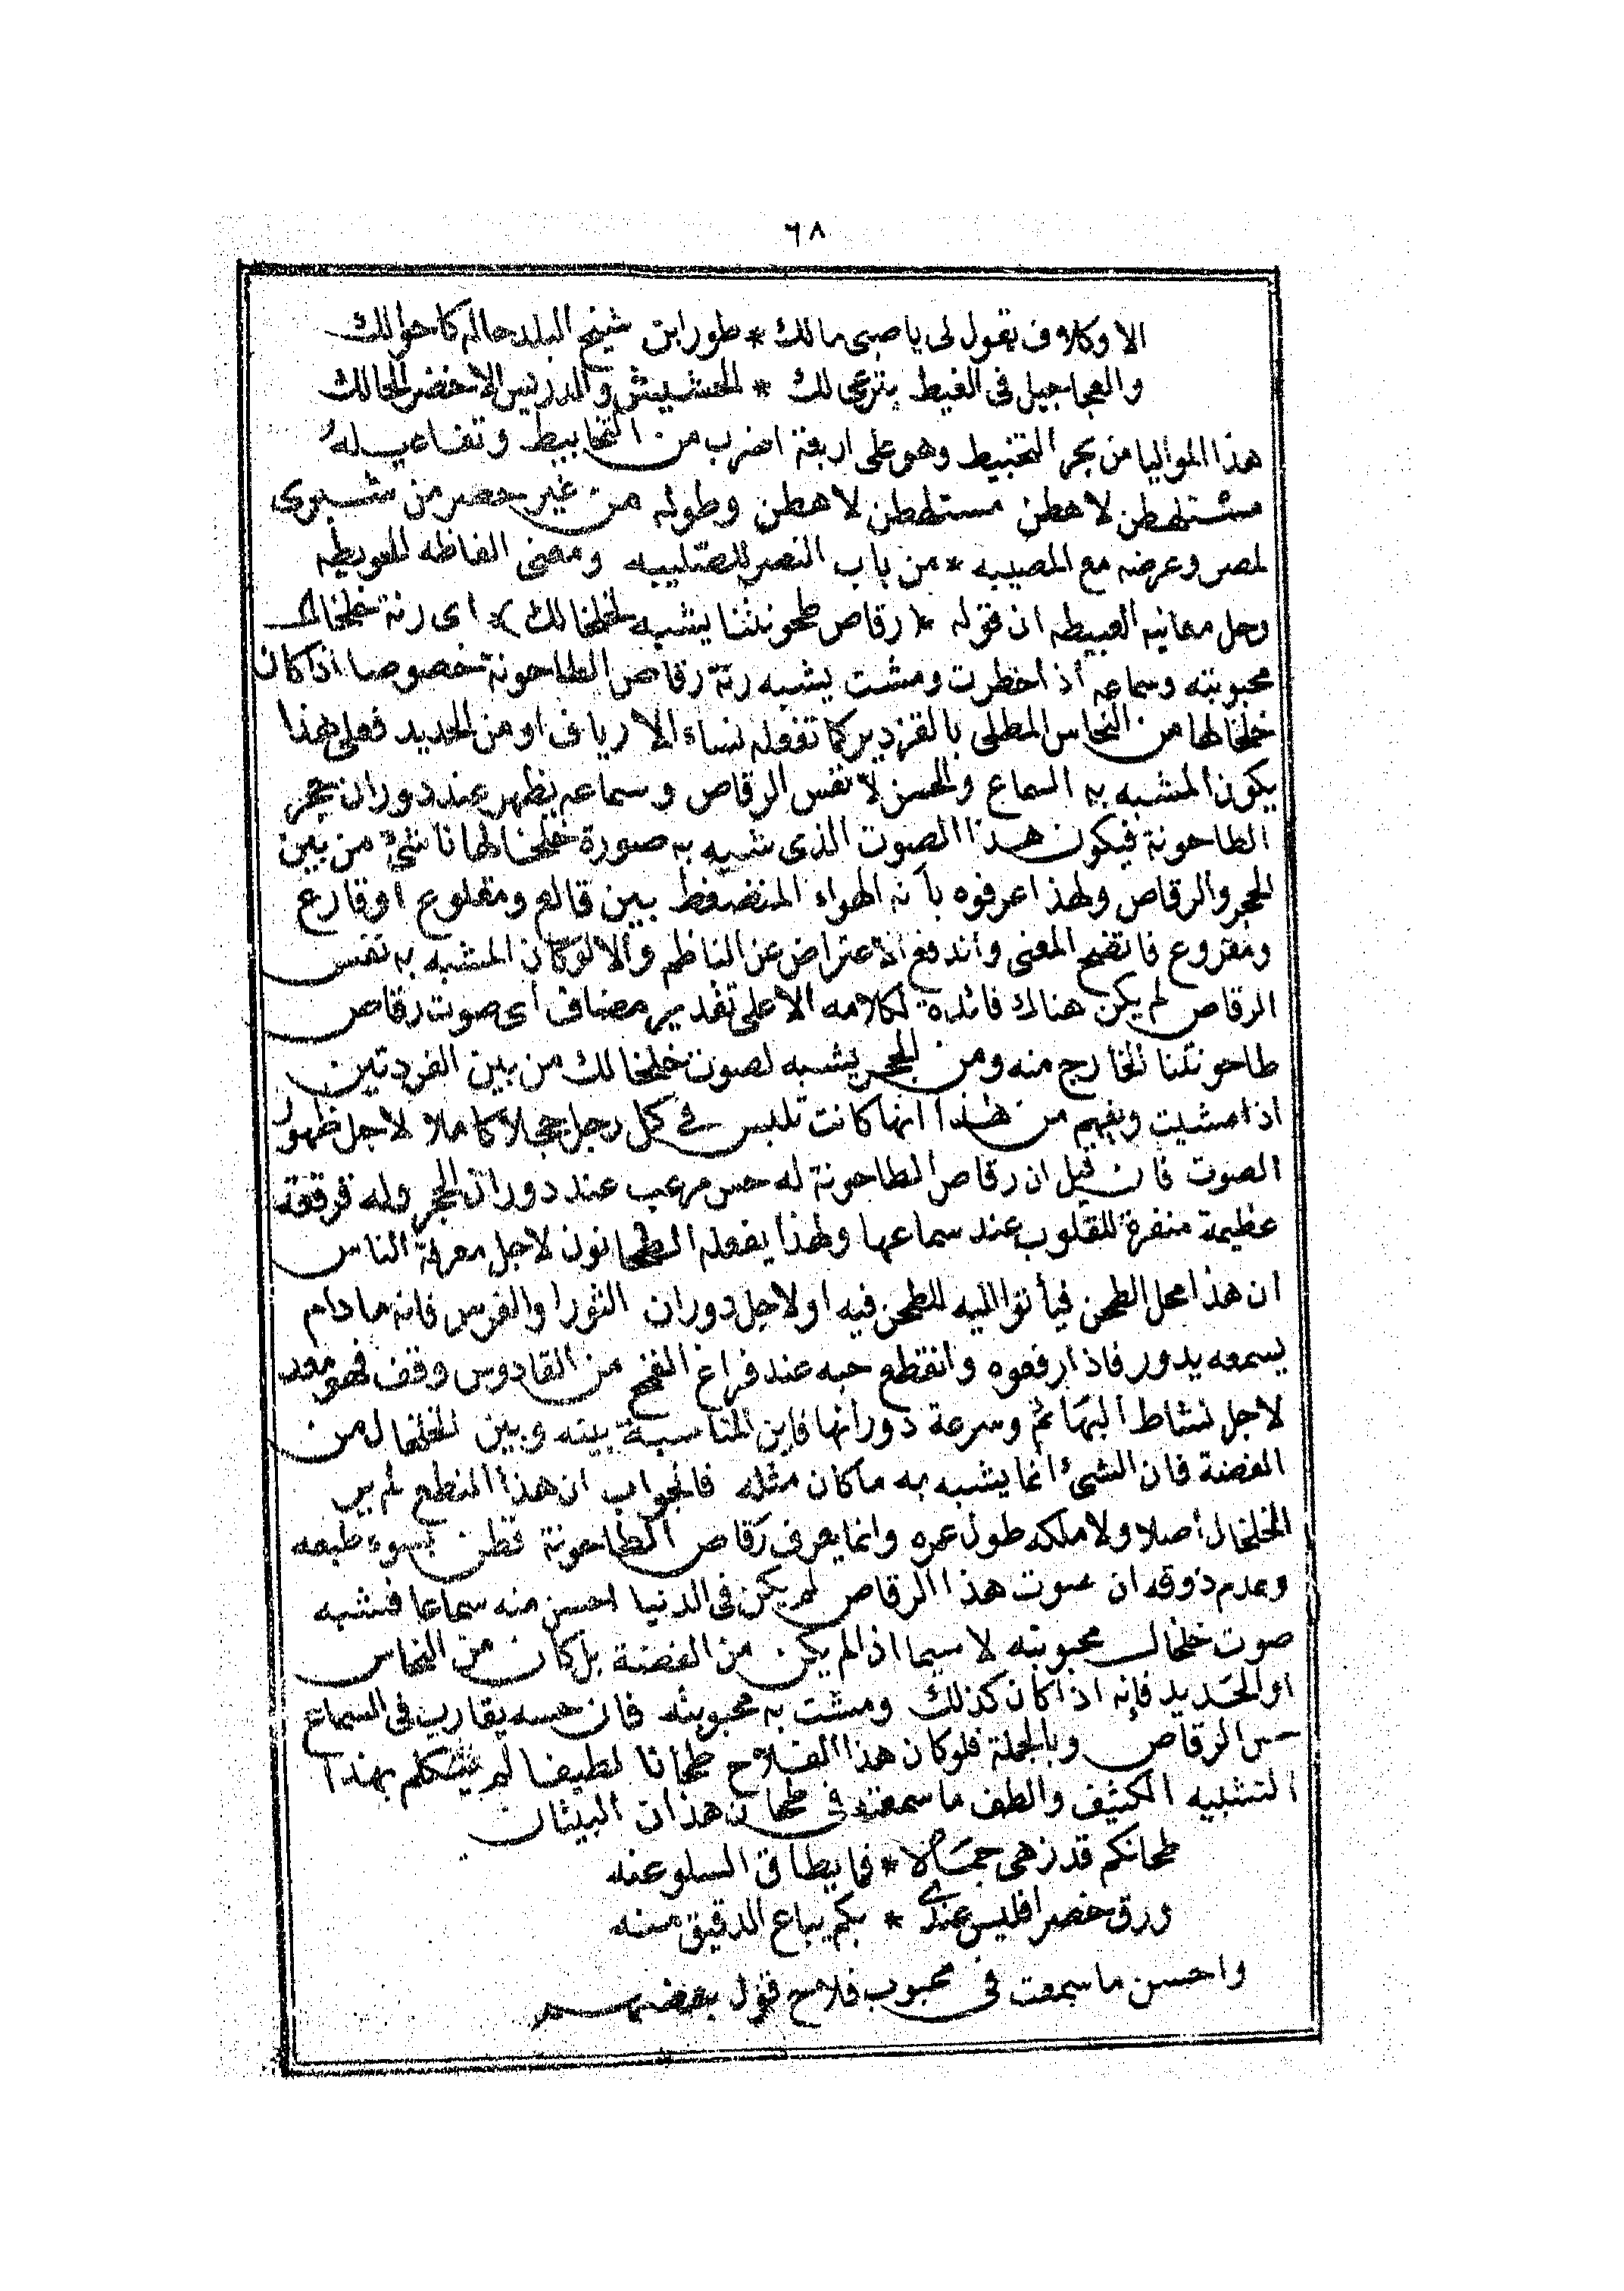 ٦٨
الا وكلاف يقول لى يا صبى مالك * طور ابن شيخ البلد حاله كا حوالك
والعجاجيل فى الغيط بترعى لك * الحشيش والدريس الاخضر الحالك
هذا المواليا من بحر التخبيط وهو على اربعة اضرب من التخابيط وتفاعيله
مشتلهطن لاهطن مستلهطن لاهطن وطوله من غير حصر من شبرى
لمصر وعرضه مع المصيبه * من باب النصر للصليبه ومعنى الفاظه العويطه
وحل معانيه العبيطه ان قوله * (رقاص طحونتنا يشبه لخلخالك) * اى رنة خلخال
محبوبته وسماعه اذا خطرت ومشت يشبه رنة رقاص الطاحونة خصوصا اذا كان
خلخالها من النحاس المطلى بالقزدير كما تفعله نساء الارياف او من الحديد فعلى هذا
يكون المشبه به السماع والحسن لا نفس الرقاص وسماعه يظهر عند دوران حجر
الطاحونة فيكون هذا الصوت الذى شبه به صورة خلخالها ناشئ من بين
الحجر والرقاص ولهذا عرفوه بأنه الهواء المنضغط بين قالع ومقلوع او قارع
ومقروع فاتضح المعنى واندفع الاعتراض عن الناظم والا لو كان المشبه به نفس
الرقاص لم يكن هناك فائدة لكلامه الا على تقدير مضاف اى صوت رقاص
طاحونتنا الخارج منه ومن الحجر يشبه لصوت خلخالك من بين الفردتين
اذا مشيت ويفهم من هذا انها كانت تلبس فى كل رجل حجلا كاملا لاجل ظهور
الصوت فان قيل ان رقاص الطاحونة له حس مرعب عند دوران الحجر وله قرقعة
عظيمة منفرة للقلوب عند سماعها ولهذا يفعله الطحانون لاجل معرفة الناس
ان هذا محل الطحن فيأتوا اليه للطحن فيه او لاجل دوران الثور او الفرس فانه ما دام
يسمعه يدور فاذا رفعوه وانقطع حبه عند فراغ القمح من القادوس وقف فهو معد
لاجل نشاط البهائم وسرعة دورانها فاين المناسبة بينه وبين الخلخال من
الفضة فان الشئ انما يشبه به ما كان مثله فالجواب ان هذا المنطع لم ير
الخلخال أصلا ولا ملكه طول عمره وانما يعرف رقاص الطاحونة فظن بسوء طبعه
وعدم ذوقه ان صوت هذا الرقاص لم يكن فى الدنيا احسن منه سماعا فشبه
صوت خلخال محبوبته لا سيما اذا لم يكن من الفضة بل كان من النحاس
او الحديد فإنه اذا كان كذلك ومشت به محبوبته فان حسه يقارب فى السماع
حس الرقاص وبالجملة فلو كان هذا الفلاح طحانا لطيفا لم يتكلم بهذا
التشبيه الكثيف والطف ما سمعته فى طحان هذان البيتان
طحانكم قد زهى جمالا * فما يطاق السلو عنه
ورق خصرا فليس عندى * بكم يباع الدقيق منه
واحسن ما سمعت فى محبوب فلاح قول بعضهم